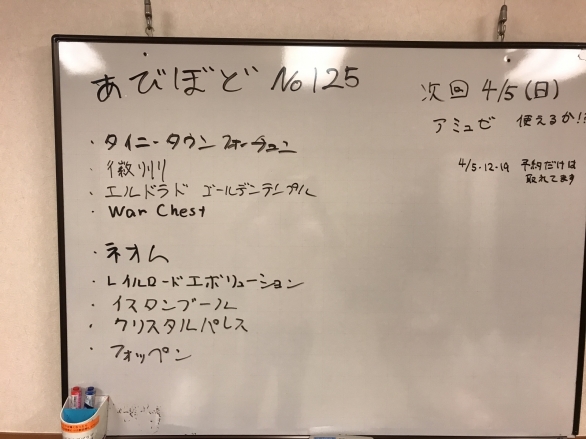 あびぼど No125
次回 4/5(日)
アミュゼ 使えるか!?
4/5・12・19 予約だけは
取れてます
・タイニータウン フォーチュン
・エルドラド ゴールデンテンプル
・War Chest
・ネオム
・レイルロードエボリューション
・イスタンブール
・クリスタルパレス
・フォッペン